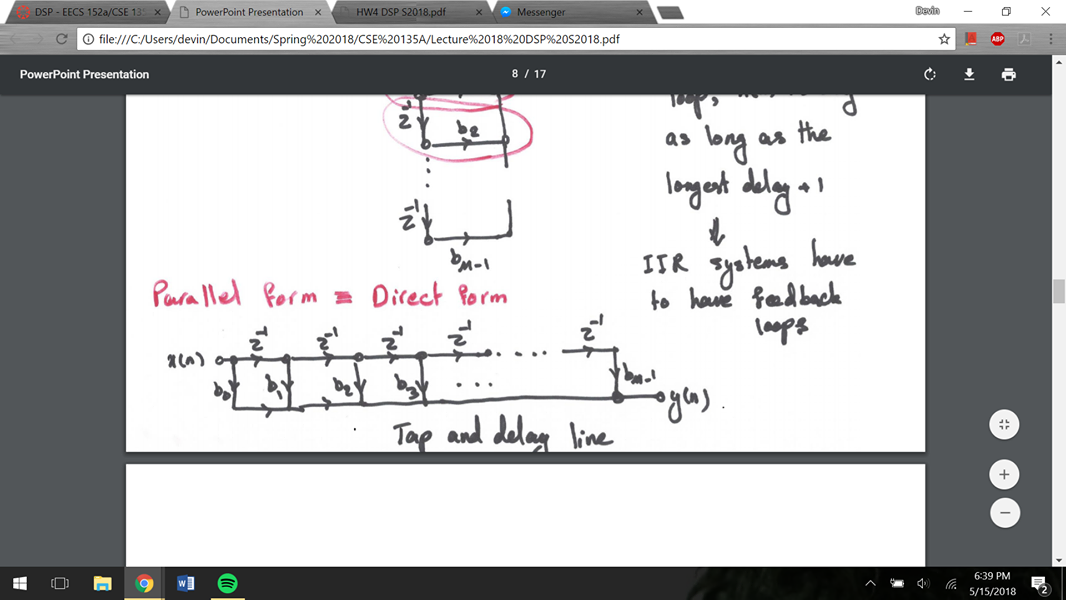 DSP - EECS 152a/CSE 135
PowerPoint Presentation
HW4 DSP S2018.pdf
Messenger
Devin
file:///C:/Users/devin/Documents/Spring%202018/CSE%20135A/Lecture%2018%20DSP%20S2018.pdf
ABP
PowerPoint Presentation
8 / 17
loop,
z⁻¹
b₂
as long as the
longest delay + 1
z⁻¹
b_{M-1}
IIR systems have
to have feedback
loops
Parallel form ≡ Direct form
z⁻¹ z⁻¹ z⁻¹ z⁻¹ .... z⁻¹
x(n)
b₀ b₁ b₂ b₃ ... b_{M-1}
y(n)
Tap and delay line
6:39 PM
5/15/2018
2